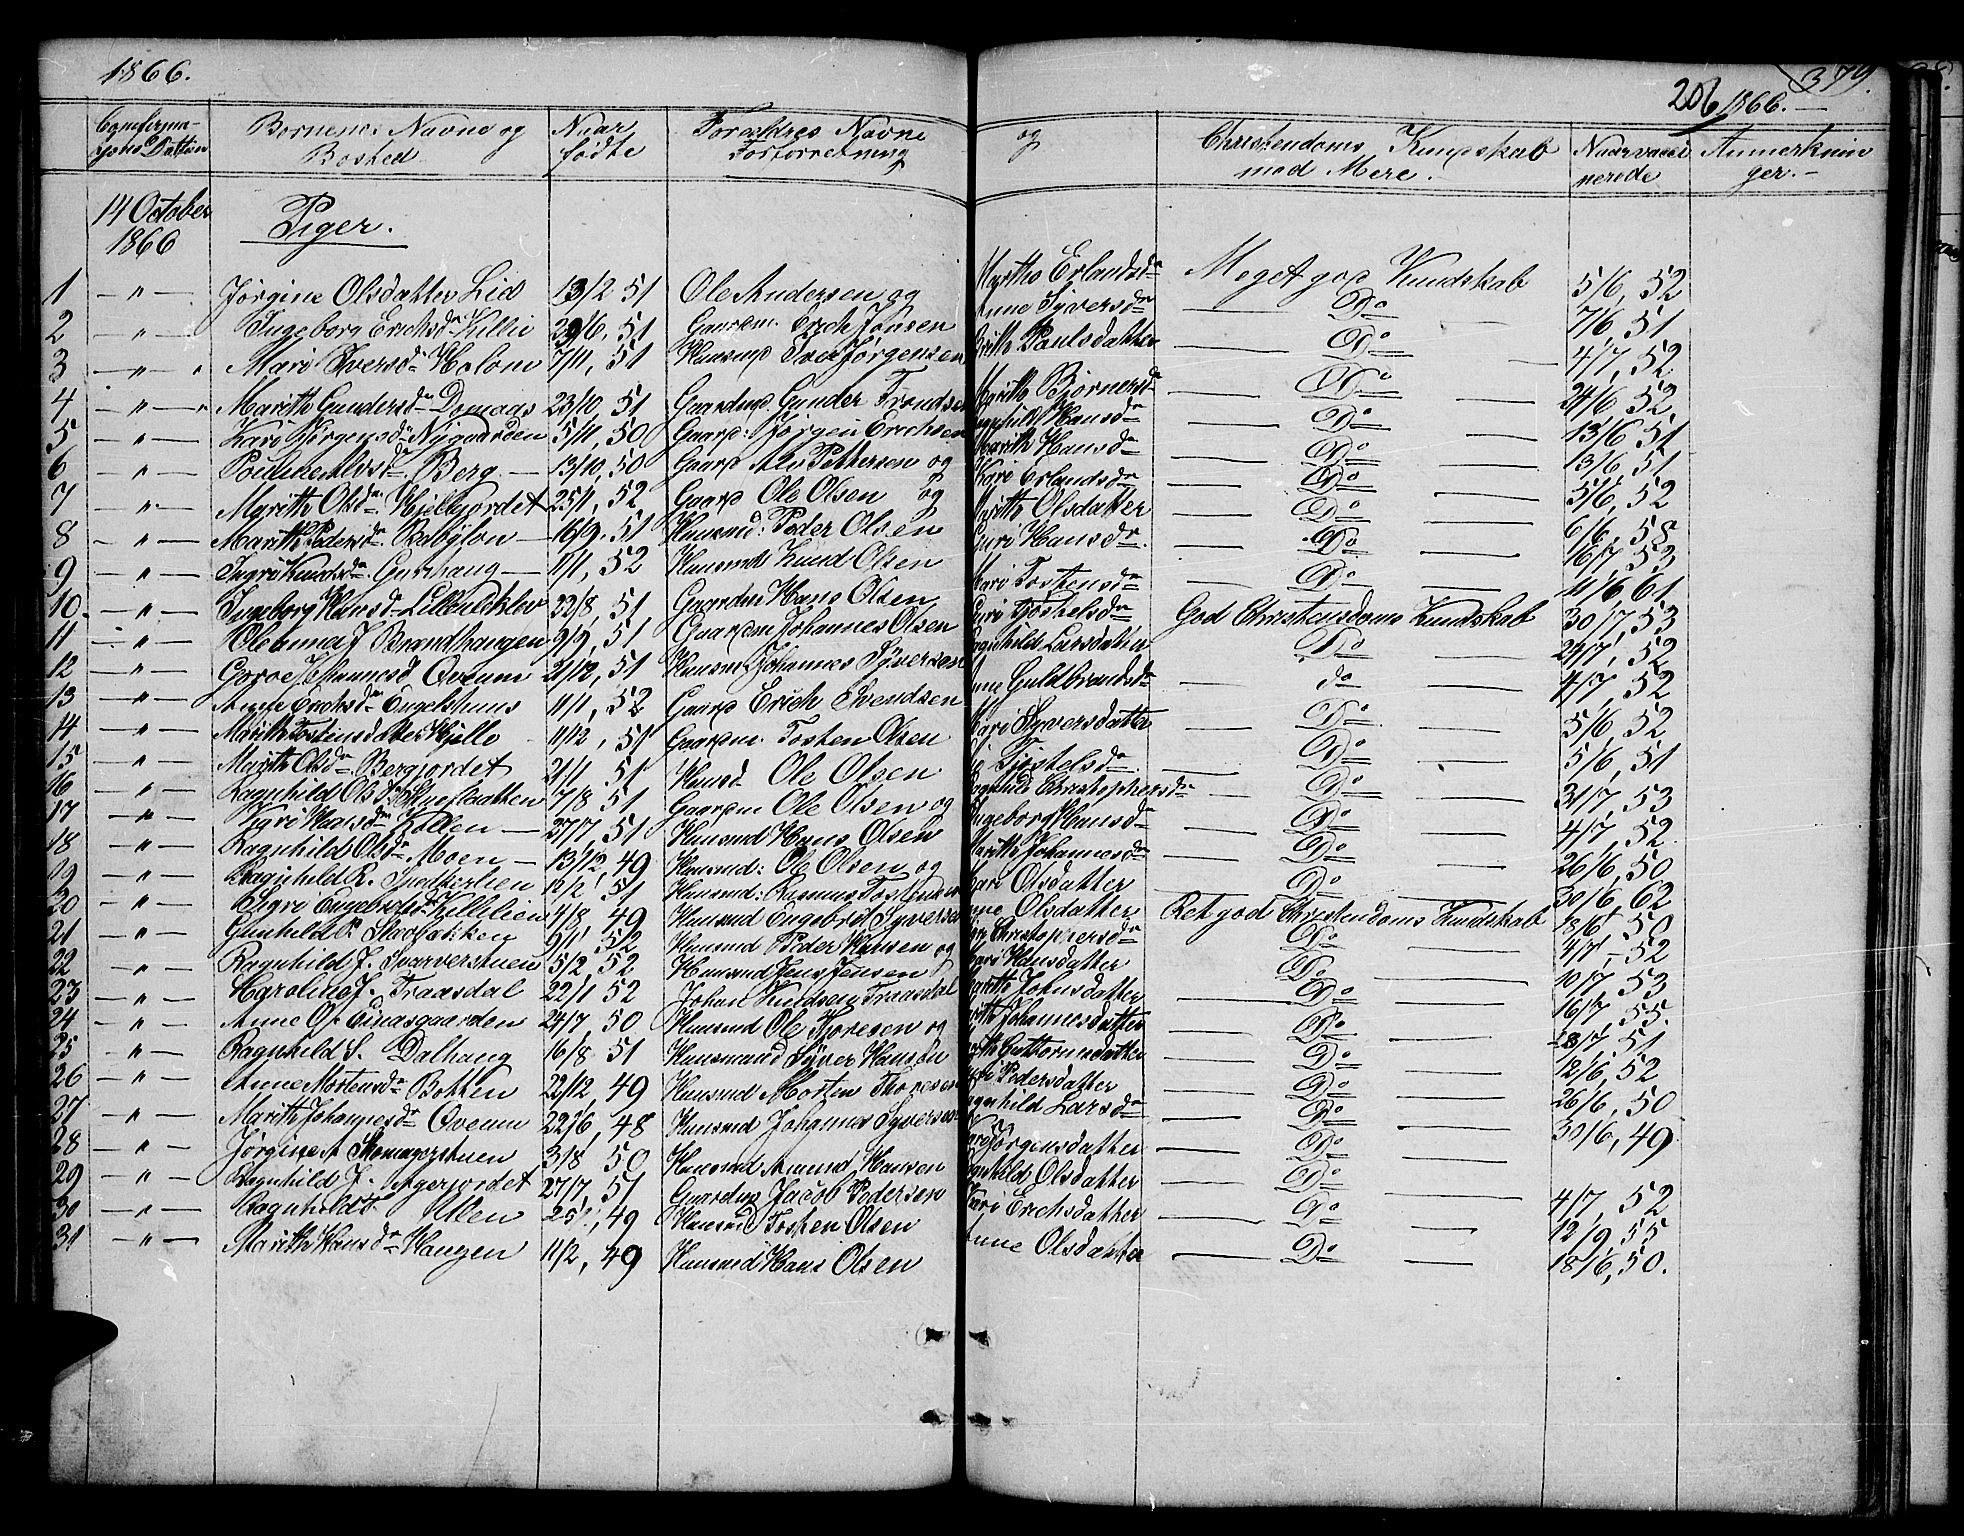 1866.
379.
206 1866.—
Confirmations Datten
Bornenes Navne og Bosted
Naar fødte
Foreældres Navne og Forforretning
Christendoms Kunpskab med Mere.
Naar vaccinerede
Anmerkninger.—
14 October 1866
Piger.
1 —"— Jørgine Olsdatter Lid 13/2 51 Ole Andersen og Myrtho Erlandsd Meget god Kundskab 5/6, 52
2 —"— Ingeborg Erichsd Killi 29/6, 51 Gaardm. Erich Jonsen Anne Syversd — Do — 7/6, 51
3 —"— Mari Iversd Holom 7/11, 51 Huusmd Iver Jørgensen Brith Paulsdatter — Do — 4/7, 52
4 —"— Marith Gundersd Domaas 23/10, 51 Gaardmd. Gunder Trondsen Marith Bjørnersd — Do — 24/6 52.
5 —"— Kari Jørgensd Nygaarden 5/11, 50 Gaard: Jørgen Erichsen Ragnhild Hansd — Do — 13/6 51
6 —"— Berg — 13/10, 50 Gaard Alv Pettersen og Marith Hansd — Do — 13/6, 51
7 —"— Myrith Olsd Kjelkjordet 25/1, 52 Gaard Ole Olsen og Kari Erlandsd — Do — 5/6, 52
8 —"— Marith Pedersd. Babylon — 16/9, 51 Huusmd: Peder Olsen Marith Olsdatter — Do — 6/6, 58
9 —"— Ingri Knudsd Gurihaug — 1/1, 52 Huusmd Knud Olsen Guri Hansd — Do — 16/7, 53
10. —"— Ingeborg Hansd Lilleuleklev 22/8, 51 Gaardm Hans Olsen Mari Tostensd — Do — 11/6 61
11 —"— Oleanna J Brandhaugen 9/9, 51 Gaardm Johannes Olsen Guri Tjostelsd God Christensdoms Kundskab 30/7, 53
12 —"— Goroe Johannesd Øveum 21/12, 51 Huusm Johannes Syversen Ragnhild Larsdatter — Do — 29/7, 52
13 —"— Anne Erichsd Engelshuus 11/1, 52 Gaard Erich Svendsen Anne Guldbrandsd — do — 4/7, 52
14 —"— Marith Tostensdatter Kjelle 11/12, 51 Gaardm. Tosten Olsen Mari Syversdatter — Do — 5/6, 52
15 —"— Marith Olsd Bergjordet 21/1, 51 Huusd Ole Olsen Tjostelsd — Do — 5/6, 51
16 —"— Ragnhild Olsd 7/8, 51 Gaardm Ole Olsen og Ragnhild Christophersd — Do — 31/7, 53
17 —"— Sigri Hansd Kollen — 27/7, 51 Huusmd Hans Olsen Ingeborg Hansd — Do — 4/7, 52
18 —"— Ragnhild Olsd Moen — 13/12, 49 Huusmd: Ole Olsen og Marith Johannesd — Do — 26/6, 50
19 —"— Ragnhild R. 12/2, 51 Huusmd: Rasmus Mari Olsdatter — Do — 30/6, 62
20 —"— Sigri Engebrigtsd Killilien 4/8, 49 Huusmd Engebrigt Syversen Anne Olsdatter Ret god Christendoms Kundskab 18/6 50
21 —"— Gunhild P. Skovbakken 9/1, 52 Huusmd Peder Hansen og Christophersd — Do — 4/7, 52
22 —"— Ragnhild J. Svarverstuen 5/2, 52 Huusmd Jens Jensen Kari Hansdatter — Do — 10/7 53
23 —"— Karoline J. Traasdal 22/1 52 Johan Knudsen Traasdal Marith Johnsdatter — Do — 16/7, 55.
24 —"— Anne O. Einasgaarden 24/7, 50 Huusmd Ole og Marith Johannesdatter — Do — 8/7 51
25 —"— Ragnhild S. Dalhaug 16/8 51 Huusmand Syver Hansen Marith Guttormsdatter — Do — 12/6, 52
26 —"— Anne Mortensd Botten 22/12, 49 Huusmd Morten Thoresen Kari Pedersdatter — Do — 26/6, 50
27 —"— Marith Johannesd Øveum 22/6, 48 Huusmd Johannes Syversen Ragnhild Larsd — Do — 30/6, 49.
28 —"— Jørgine A Skomagerstuen 3/8, 50 Huusmd Amund Hansen Kari Jørgensdatter — Do —
29 —"— Ragnhild J. Agerjordet 27/7, 51 Gaardmd Jacob Pedersen Ragnhild Olsdatter — Do — 4/7, 52
30 —"— Ragnhild T. Ullen 49 Huusmd Tosten Olsen Kari Erichsdatter — Do — 12/9, 55
31 —"— Marith Hansd Haugen 11/2, 49 Huusmd Hans Olsen Anne Olsdatter — Do — 18/6, 50.